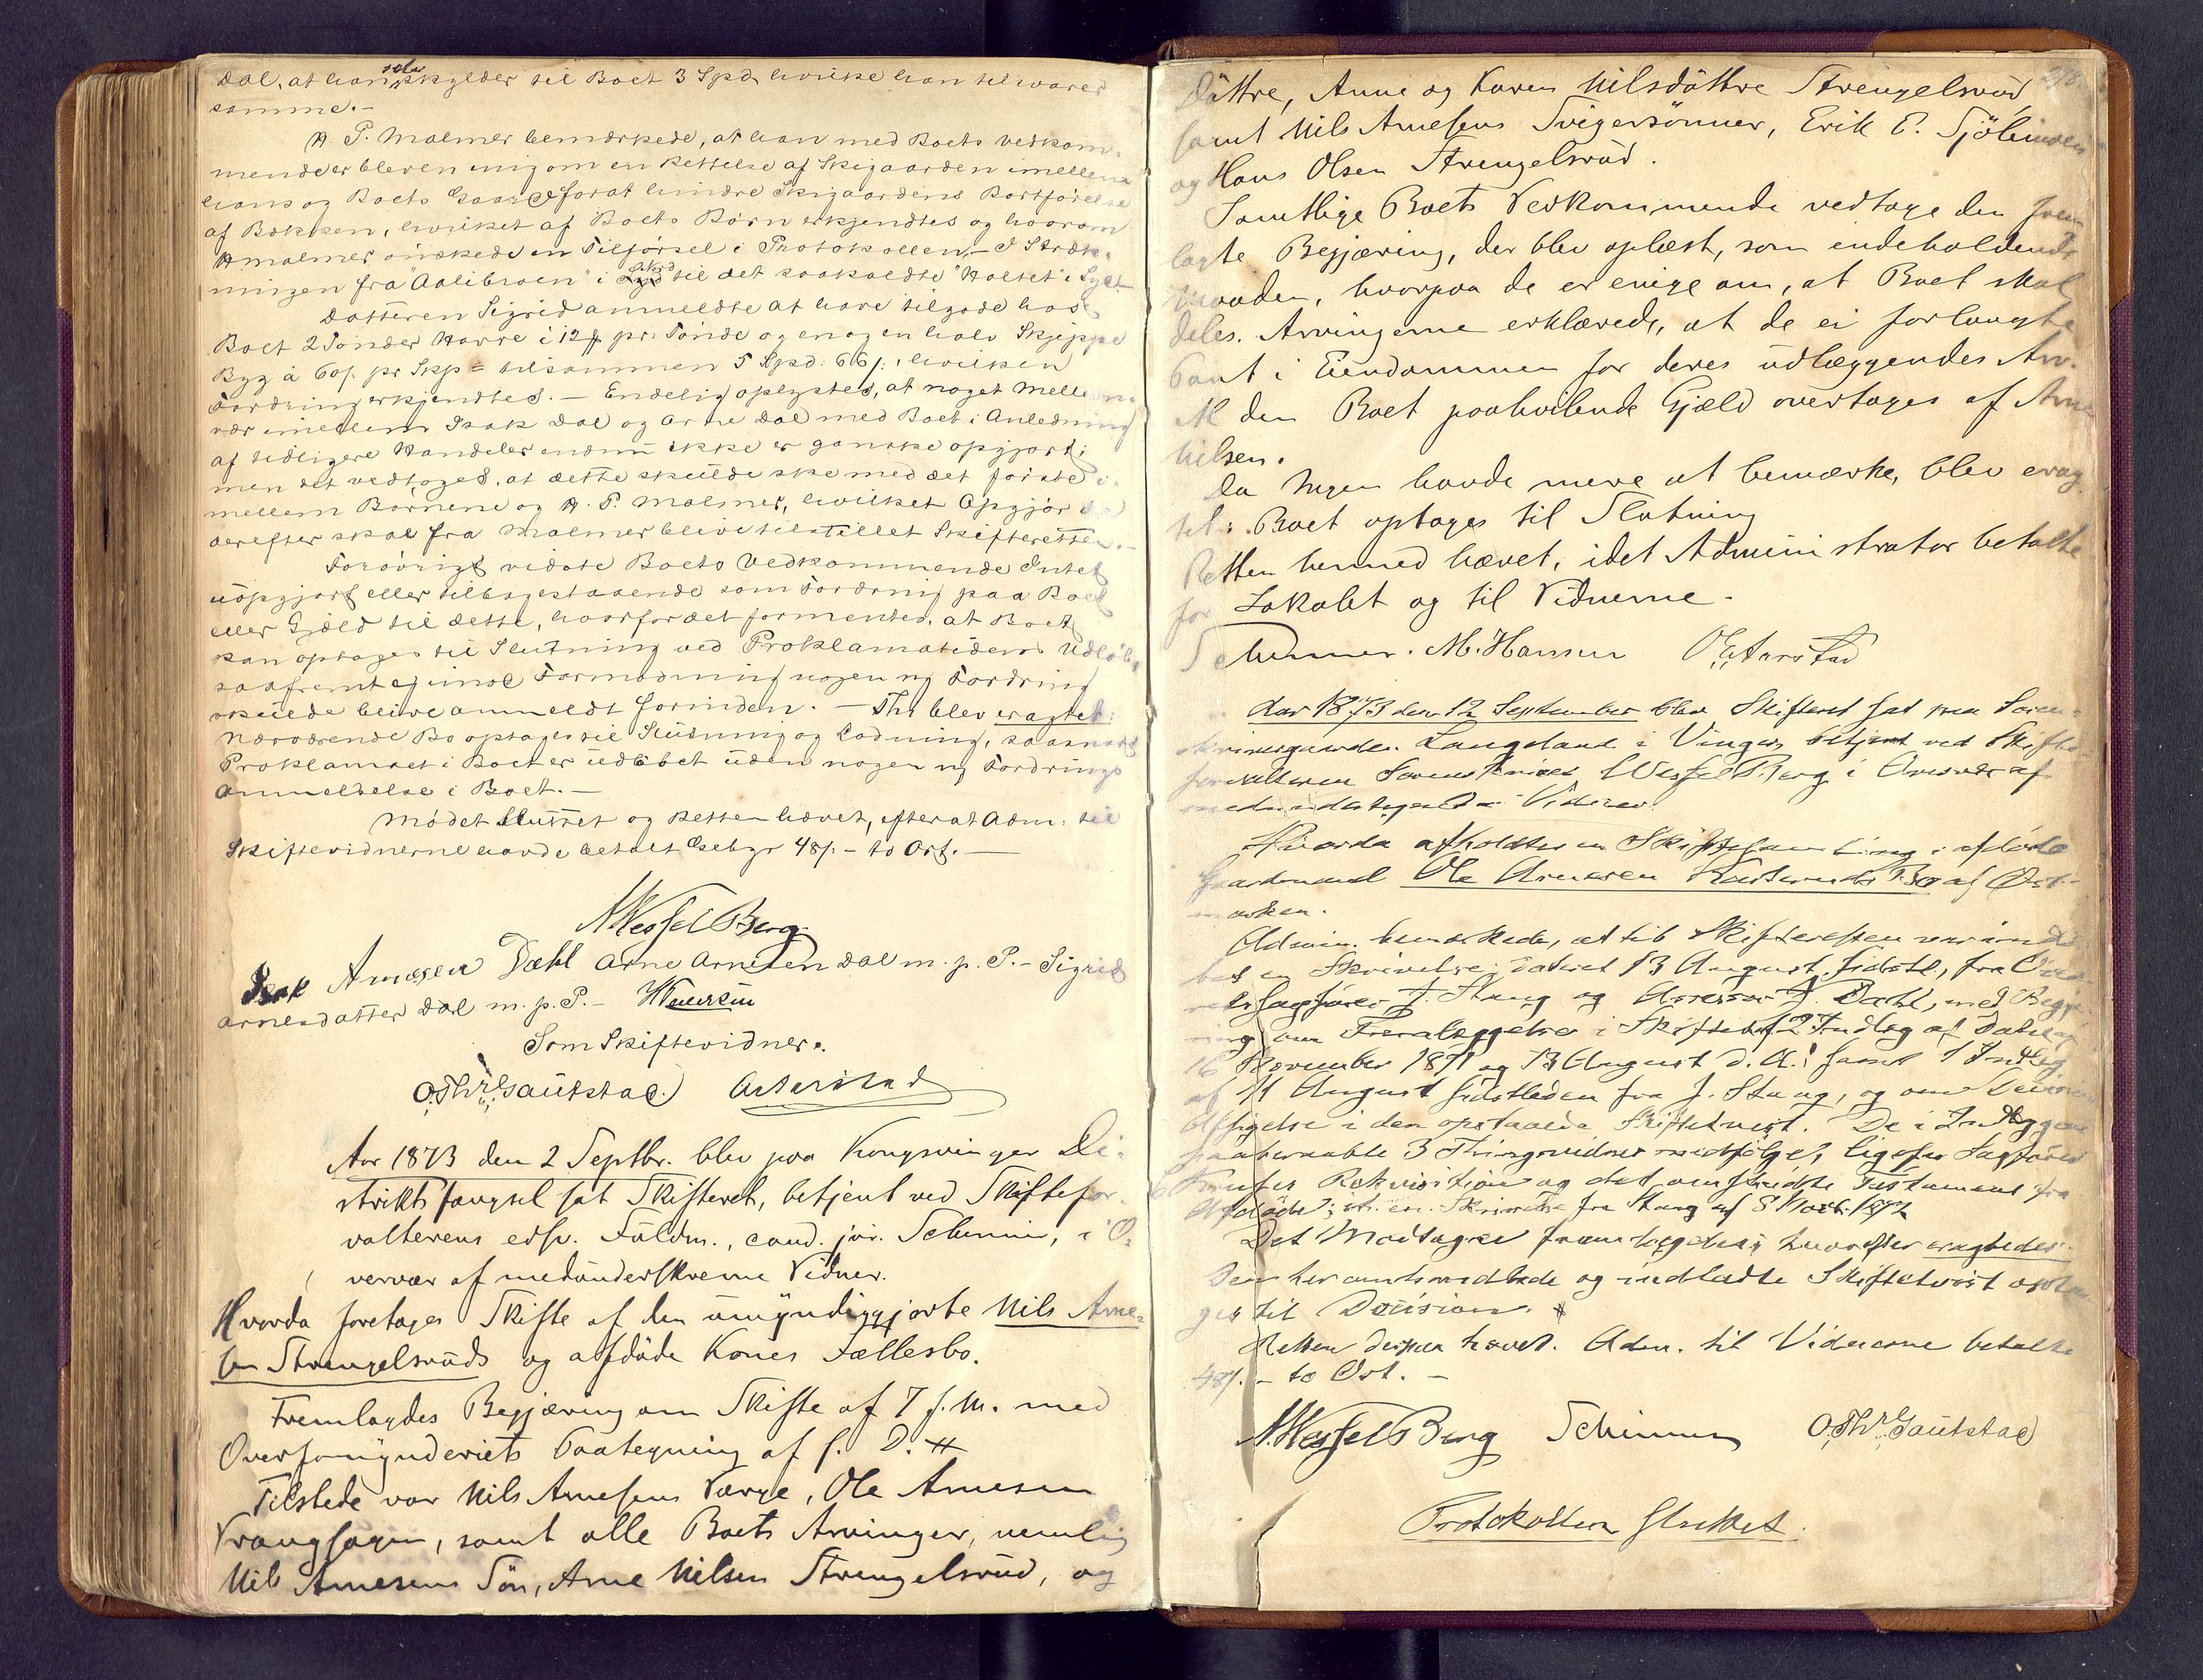 Dal, at han selv skylder til Boet 3 Spd hvilke han tilsvarer
samme.-
A. P. Malmer bemærkede, at han med Boets vedkom-
mende er bleven enig om en Rettelse af Skigaarden imellem
hans og Boets Gaard for at hindre Skigaardens Bortførelse
af Bækken, hvilket af Boets Børn erkjendtes og hvorom
A Malmer ønskede en Tilførsel i Protokollen,- I Stræk-
ningen fra "Aalibroen" i til det saakaldte "Holtet" i
Datteren Sigrid anmeldte at have tilgode hos
Boet 2 Tønder Havre i 12 pr. Tønde og en og en halv Skjeppe
Byg à 60 s. pr Skp = tilsammen 5 Spd: 66 s., hvilken
Fordring erkjendtes. — Endelig oplystes, at noget Mellem-
vær imellem Isak Dal og Arne Dal med Boet i Anledning
af tidligere Handeler endnu ikke er ganske opgjort;
men det vedtoges, at dette skulde ske med det første i-
mellem Børnene og A. P. Malmer, hvilket Opgjør
derefter skal fra Malmer blive tilstillet Skifteretten.-
Forøvrigt vidste Boets Vedkommende Intet
uopgjort eller tilbagestaaende som Fordring paa Boet
eller Gjæld til dette, hvorfor det formentes, at Boet
kan optages til Slutning ved Proklamatidens Udløb,
saafremt ej imod Formodning nogen ny Fordring
skulde blive anmeldt forinden. — Thi blev eragtet:
Nærværende Bo optages til Slutning og Lodning, saasnart
Proklamaet i Boet er udløbet uden nogen ny Fordrings
Anmeldelse i Boet. —
Mødet sluttet og Retten hævet, efterat Adm: til
Skiftevidnerne havde betalt Gebyr 48 s. - to Ort. —
N Wessel Berg.
Isak Arnesen Dahl Arne Arnesen Dal m. p. P. - Sigrid
Arnesdatter Dal m. p. P. -
Som Skiftevidner:
O. Thr. Gaukstad. O Aarstad
Aar 1873 den 2 Septbr. blev paa Kongsvinger Di-
strikts fængsel sat Skifteret, betjent ved Skiftefor-
valterens edsv. Fuldm., cand. jur. Schinner, i O-
vervær af medunderskrevne Vidner.
Hvorda foretages Skifte af den umyndiggjorte Nils Arne-
sen Strengelsruds og afdøde Kones Fællesbo.
Fremlagdes Begjæring om Skifte af 7 f. M. med
Overformynderiets Paategning af s. D. #
Tilstede var Nils Arnesens Værge, Ole Arnesen
Vrangsagen, samt alle Boets Arvinger, nemlig
Nils Arnesens Søn, Arne Nilsen Strengelsrud, og
Døttre, Anne og Karen Nilsdøttre Strengelsrud
samt Nils Arnesens Svigersønner, Erik E. Sjöli
og Hans Olsen Strengelsrud.
Samtlige Boets Vedkommende vedtage den frem-
lagte Begjæring, der blev oplæst, som indeholdende
Maaden, hvorpaa de er enige om, at Boet skal
deles. Arvingerne erklærede, at de ei forlangte
Pant i Eiendommen for deres udlæggendes Arv.
Al den Boet paahvilende Gjæld overtages af Arne
Nilsen.
Da Ingen havde mere at bemærke, blev erag-
tet: Boet optages til Slutning
Retten hermed hævet, idet Administrator betalte
for Lokalet og til Vidnerne -
Schinner. M. Hansen O Aarstad
Aar 1873 den 12 September blev Skifteret sat paa Soren-
skrivergaarden Langeland i Vinger betjent ved Skifte-
forvalteren Sorenskriver Wessel Berg i Overvær af
medundertegnede Vidner.
Hvorda afholdtes en Skiftesamling i afdøde
Gaardmand Ole Arnesen Bo af Øst-
marken.
Admin. bemærkede, at til Skifteretten var ind
en Skrivelse, dateret 13 August sidstl., fra
Sagfører J. Stang og Assessor J. Dahl, med Begjæ-
ring om Fremlæggelse i Skifteret 2 Indlæg af Datum
16 November 1871 og 13 August d. A. samt 1 Indlæg
af 11 August sidstleden fra J. Stang, og om Decisions
Afsigelse i den opstaaede Skiftetvist. De i Indlæggene
paaberaabte 3 Thingsvidner medfølge, ligesom Sagfører
Rekvisition og det omtvistede Testament fra
Afdøde; en Skrivelse fra Stang af 8 1872
Det Modtagne fremlægdes; hvorefter eragtedes:
Den her omhandlede og indledte Skiftetvist opta-
ges til Decision.
Retten derpaa hævet. Adm. til Vidnerne betalte
48 s. - to Ort. -
N. Wessel Berg Schinner O. Thr. Gaukstad
Protokollen sluttet.